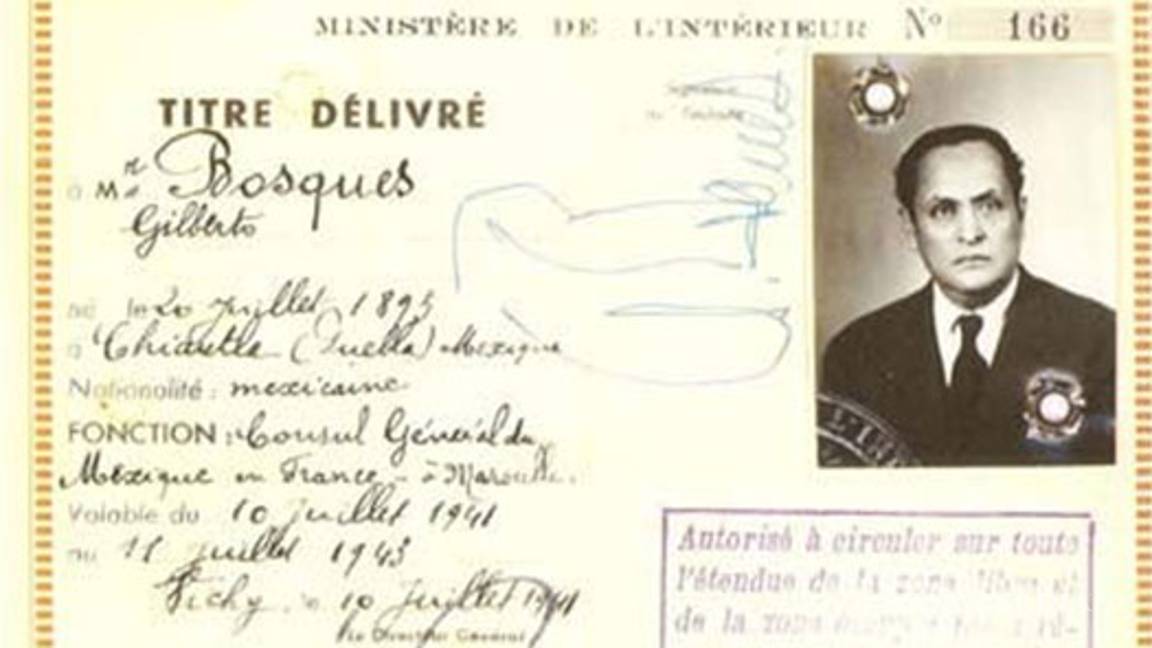 MINISTÈRE DE L'INTÉRIEUR Nº 166
TITRE DÉLIVRÉ
à Mr Bosques
Gilberto
né le 20 juillet 1893
à Chiautla (Puebla) Mexique
Nationalité : mexicaine
FONCTION : Consul Général du
Mexique en France - à Marseille.
Valable du 10 juillet 1941
au 11 juillet 1943
Vichy, le 10 juillet 1941
Le Directeur Général
Autorisé à circuler sur toute
l'étendue de la zone libre et
de la zone